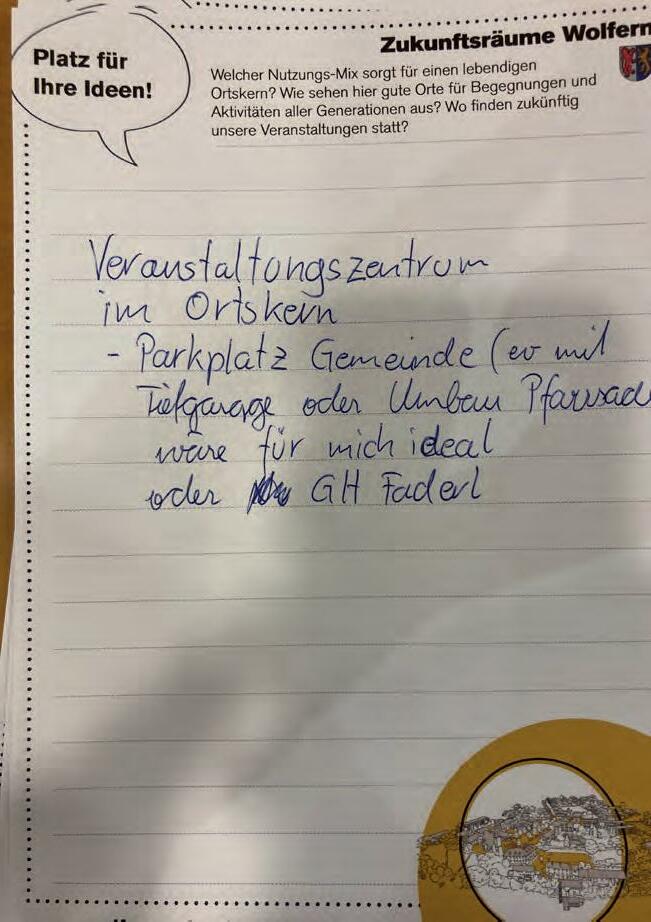 Platz für
Ihre Ideen!
Zukunftsräume Wolfern
Welcher Nutzungs-Mix sorgt für einen lebendigen
Ortskern? Wie sehen hier gute Orte für Begegnungen und
Aktivitäten aller Generationen aus? Wo finden zukünftig
unsere Veranstaltungen statt?
Veranstaltungszentrum
im Ortskern
- Parkplatz Gemeinde (ev mit
Tiefgarage oder Umbau
wäre für mich ideal
oder GH Faderl